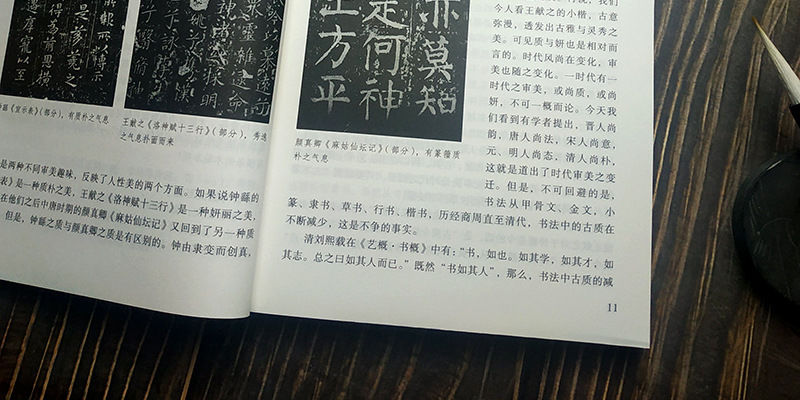 繇《宣示表》(部分),有质朴之气息
王献之《洛神赋十三行》(部分),秀逸
之气息扑面而来
是两种不同审美趣味,反映了人性美的两个方面。如果说钟繇的
表》是一种质朴之美,王献之《洛神赋十三行》是一种妍丽之美,
在他们之后中唐时期的颜真卿《麻姑仙坛记》又回到了另一种质
但是,钟繇之质与颜真卿之质是有区别的。钟由隶变而创真,
亦莫知
是何神
王方平
颜真卿《麻姑仙坛记》(部分),有篆籀质
朴之气息
今人看王献之的小楷,古意
弥漫,透发出古雅与灵秀之
美。可见质与妍也是相对而
言的。时代风尚在变化,审
美也随之变化。一时代有一
时代之审美,或尚质,或尚
妍,不可一概而论。今天我
们看到有学者提出,晋人尚
韵,唐人尚法,宋人尚意,
元、明人尚态,清人尚朴,
这就是道出了时代审美之变
迁。但是,不可回避的是,
书法从甲骨文、金文,小
篆、隶书、草书、行书、楷书,历经商周直至清代,书法中的古质在
不断减少,这是不争的事实。
清刘熙载在《艺概·书概》中有:“书,如也。如其学,如其才,如
其志。总之曰如其人而已。”既然“书如其人”,那么,书法中古质的减
11